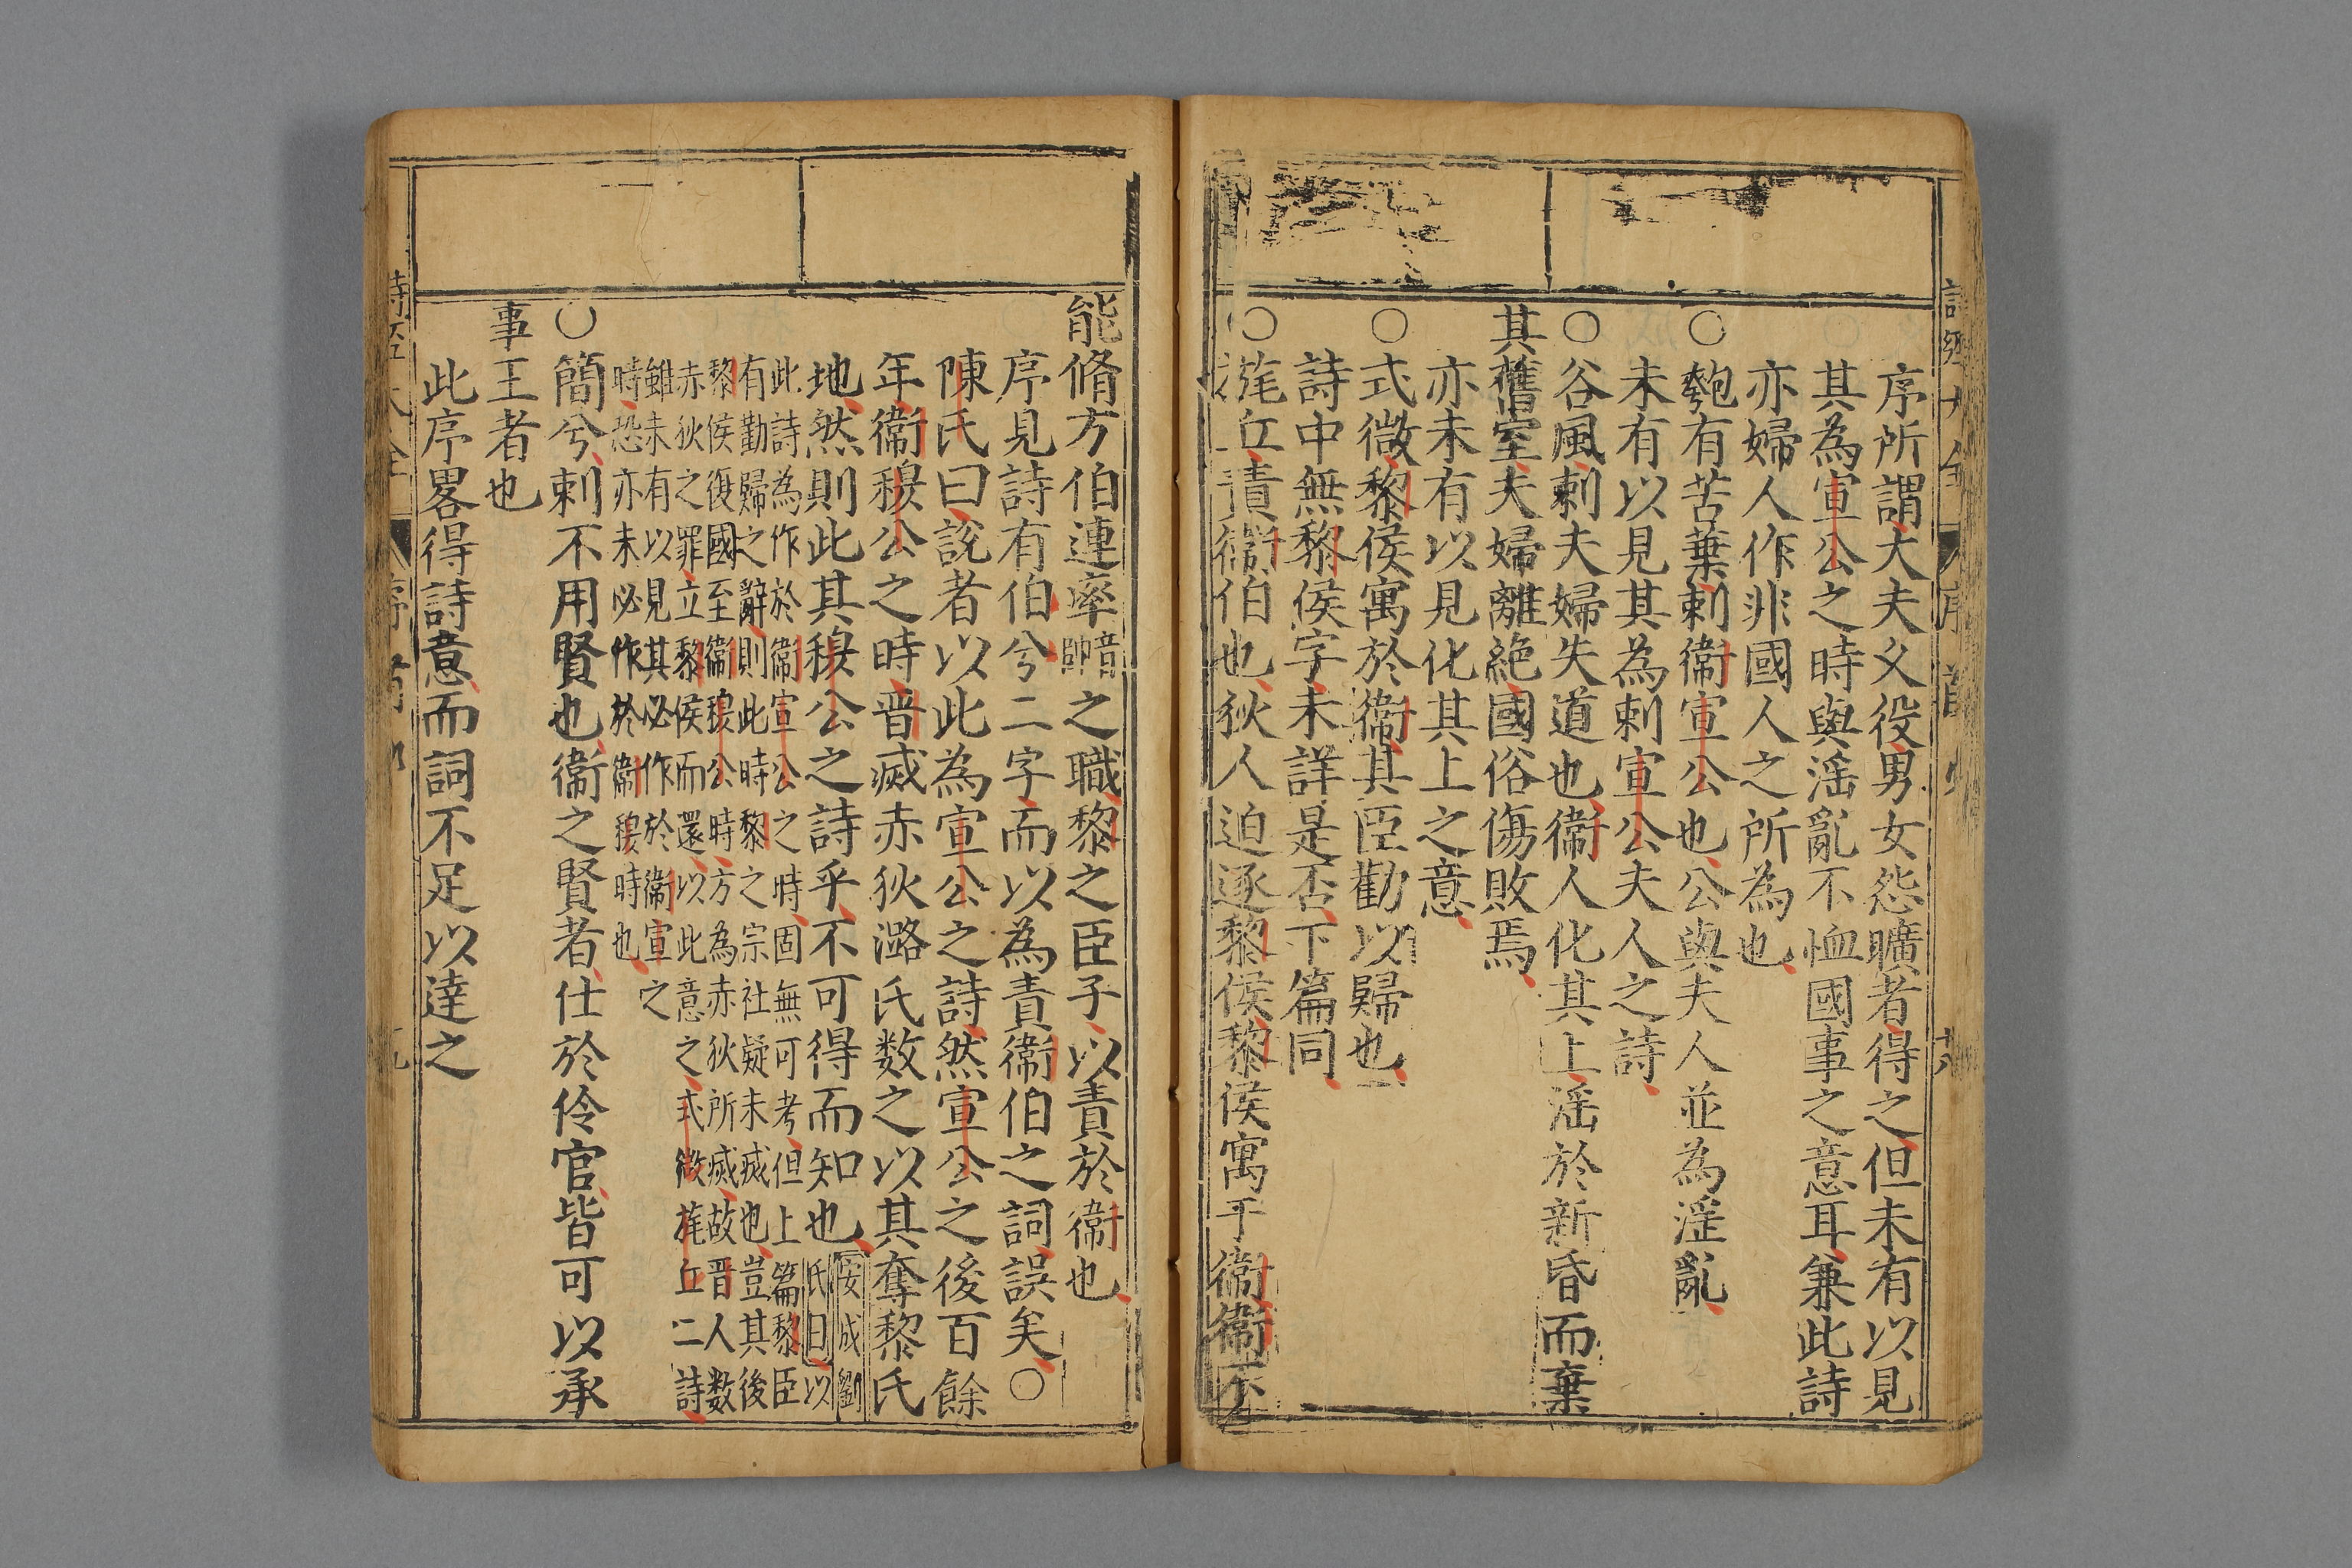 序所謂大夫义役男女怨曠者得之但未有以見
其為宣公之時與滛亂不恤國事之意耳兼此詩
亦婦人作非國人之所為也
○匏有苦葉刺衞宣公也公與夫人並為淫亂
未有以見其為刺宣公夫人之詩
○谷風刺夫婦失道也衞人化其上滛於新昏而棄
其舊室夫婦離絶國俗傷敗焉
亦未有以見化其上之意
○式微黎侯寓於衞其臣勸以歸也
詩中無黎侯字未詳是否下篇同
○旄丘責衞伯也狄人迫逐黎侯黎侯寓于衞衞不
能脩方伯連率音帥之職黎之臣子以責於衞也
序見詩有伯兮二字而以為責衞伯之詞誤矣○
陳氏曰說者以此為宣公之詩然宣公之後百餘
年衞穆公之時晋滅赤狄潞氏数之以其奪黎氏
地然則此其穆公之詩乎不可得而知也安成劉氏曰以
此詩為作於衞宣公之時固無可考但上篇黎臣
有勸歸之辭則此時黎之宗社疑未滅也豈其後
黎侯復國至衞穆公時方為赤狄所滅故晋人数
赤狄之罪立黎侯而還以此意之式微旄丘二詩
雖未有以見其必作於衞宣之
時恐亦未必作於衞穆時也
○簡兮刺不用賢也衞之賢者仕於伶官皆可以承
事王者也
此序畧得詩意而詞不足以達之